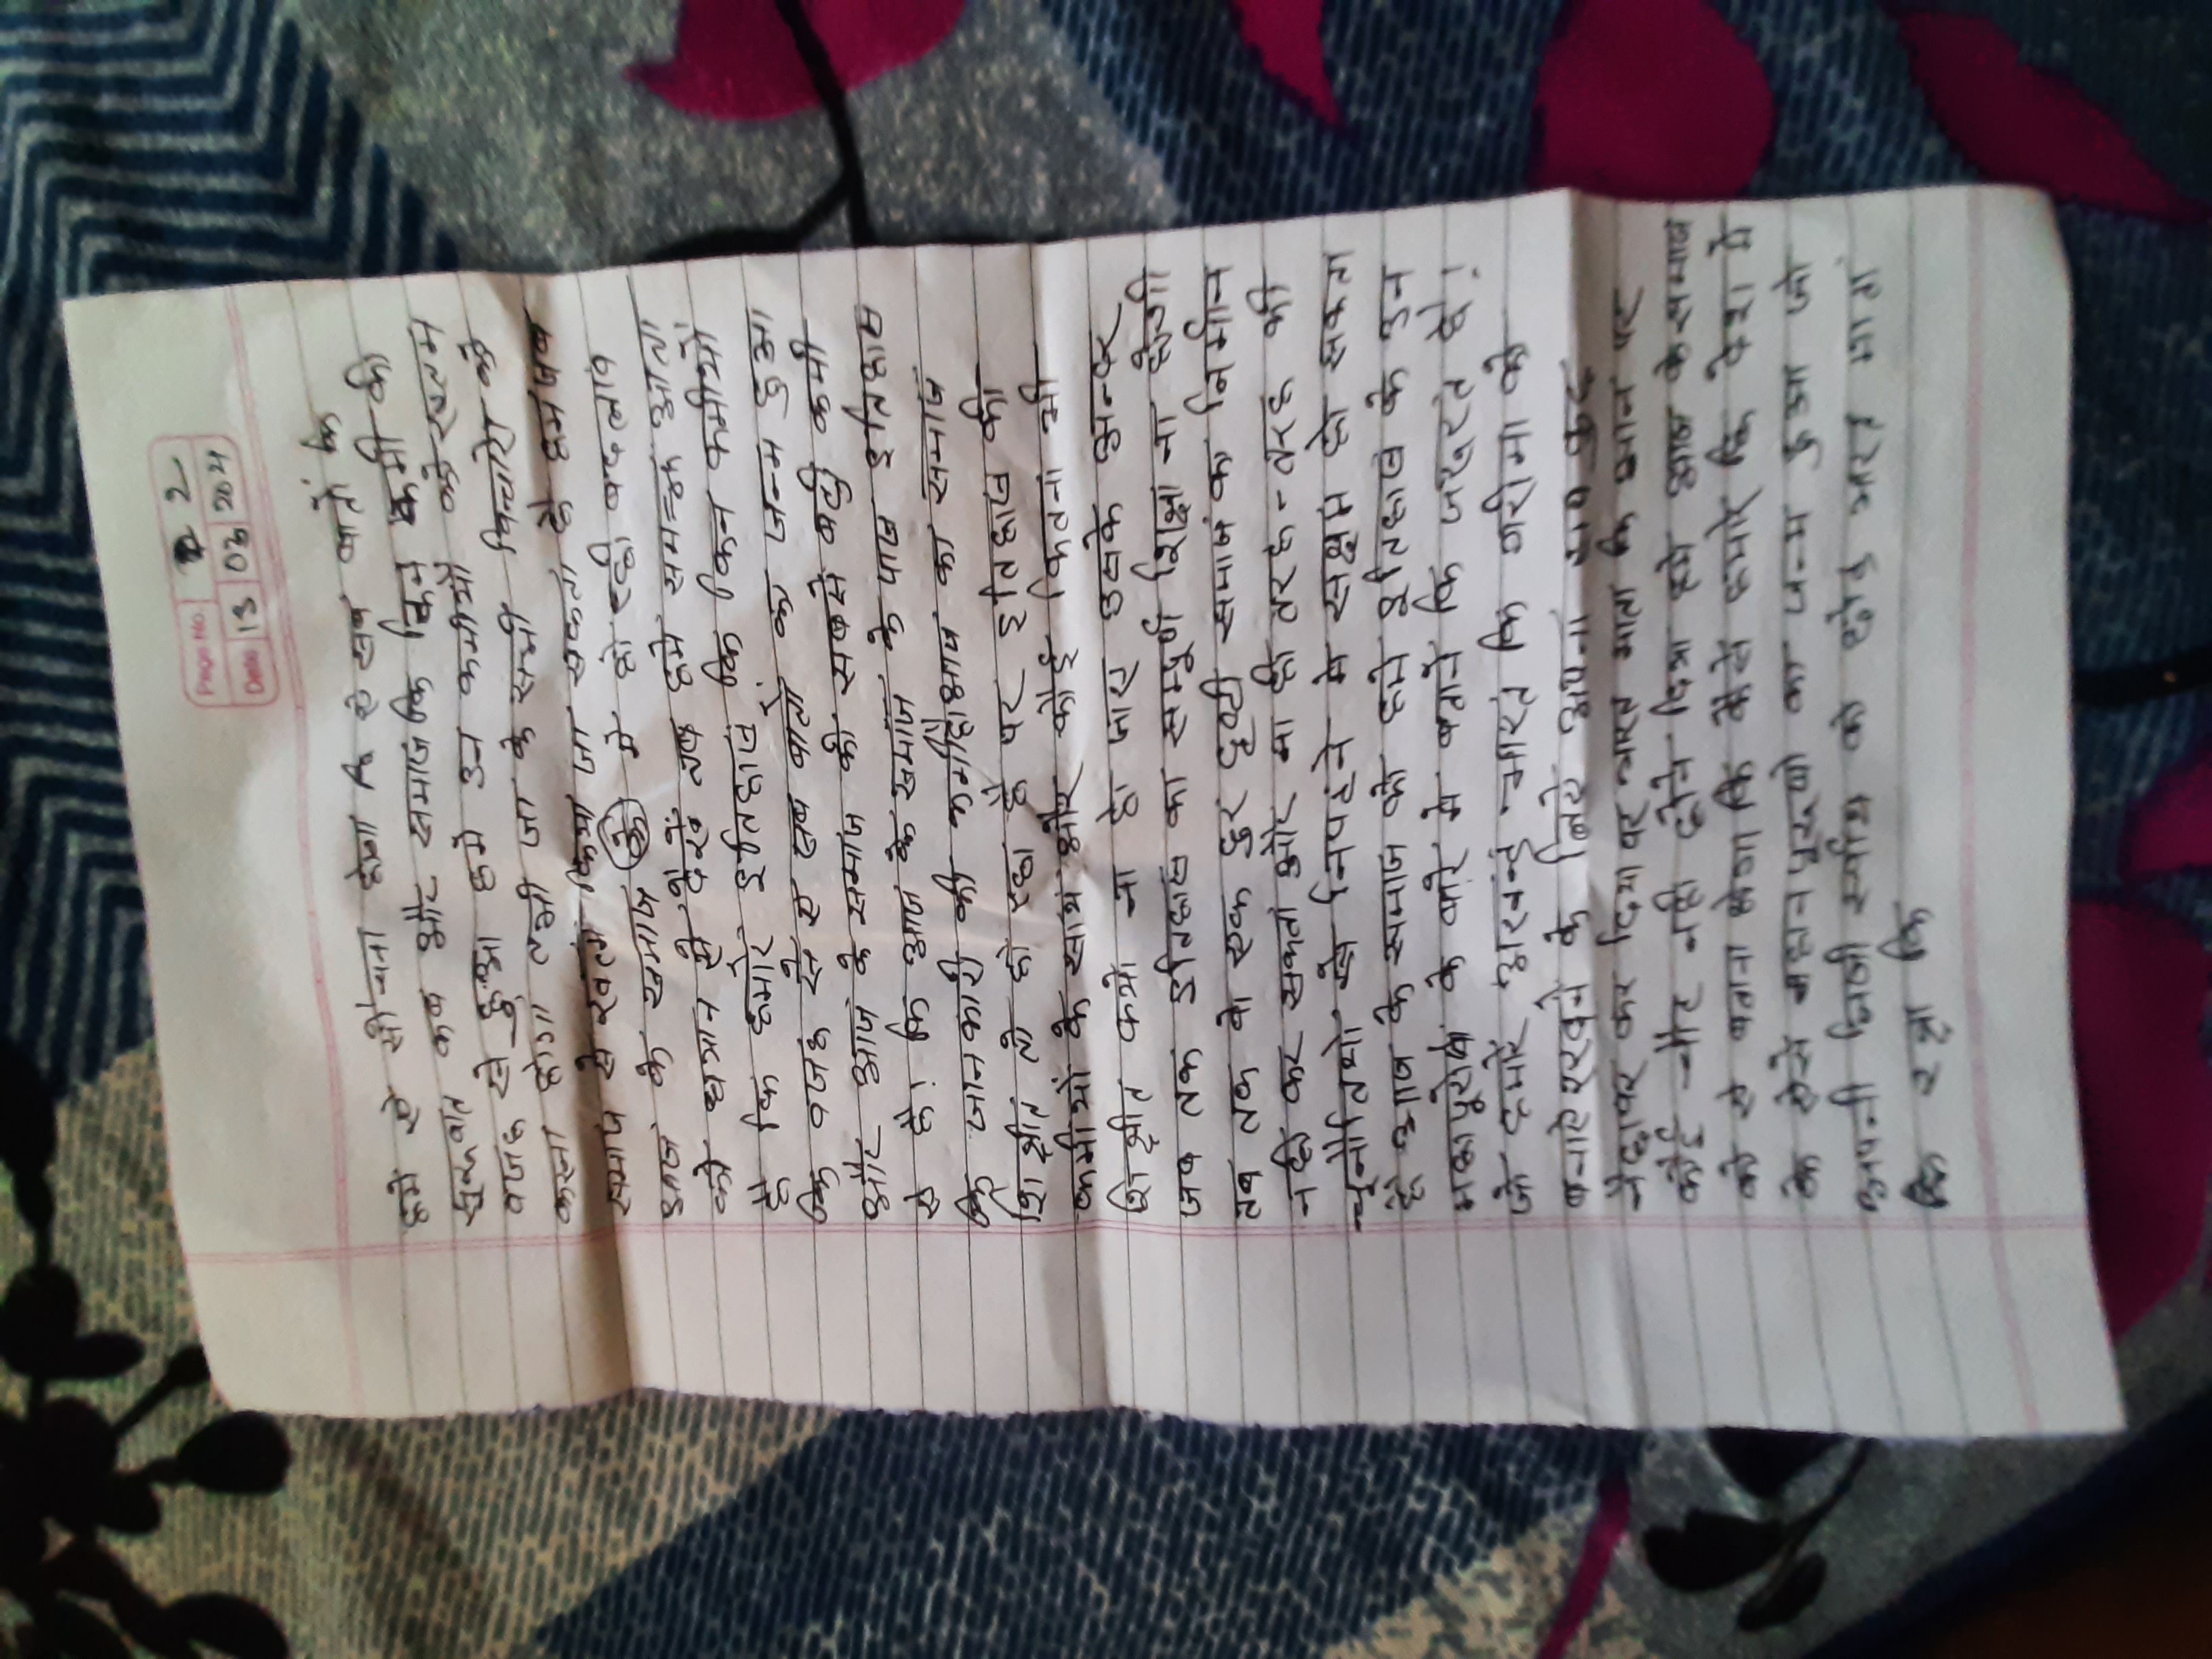 Page No. 2
Date 13 03 204
हमे ये सोचना होगा कि सब बातों कि
शुरुवात कब और समाज कि किन कमी की
वजह से हुआ हमे उन कमीयों को खत्म
करना होगा तभी जा के सभी विचारों को
समाज से खत्म किया जा सकता है हम जब
आज के समाज के मे हो रही बदलाव
को ध्यान से देखें तब हमे समझ आता
है कि हमारे इतिहास कि किन कमीयों
कि वजह से से सब बातों का जन्म हुआ
और आज के समाज की सबसे बड़ी कमी
ये है। कि आज के समाज के पास इतिहास
कि जानकारी की कमी है आज का समाज
शिक्षीत तो हो रहा है पर इतिहास की
कमीयों के साथ और कोई कितना भी
शिक्षीत क्यो ना हो जाए उसके अन्दर
जब तक इतिहास का सम्पूर्ण शिक्षा ना होगी
तब तक वो एक दुर दृष्टी समाज का निर्मान
नही कर सकता और ना ही तरह-तरह की
चुनौतियो से निपटने मे सक्षम हो सकता
है आज के समाज को हमे इतिहास के उन
महापुरुषो के बारे मे बताने कि जरूरत है।
जो हमारे अखण्ड भारत कि गरीमा को
बनाऐ रखने के लिऐ अपना सब कुछ
नेछावर कर दिया पर भारत माता कि शान पर
कोई चोट नही होने दिया हमे आज के समाज
को ये बताना होगा कि कैसे हमारे कि देश मे
के ऐसे महान पुरूषो का जन्म हुआ जो
अपनी निजी स्वार्थ को छोड़ भारत माता
कि रक्षा कि